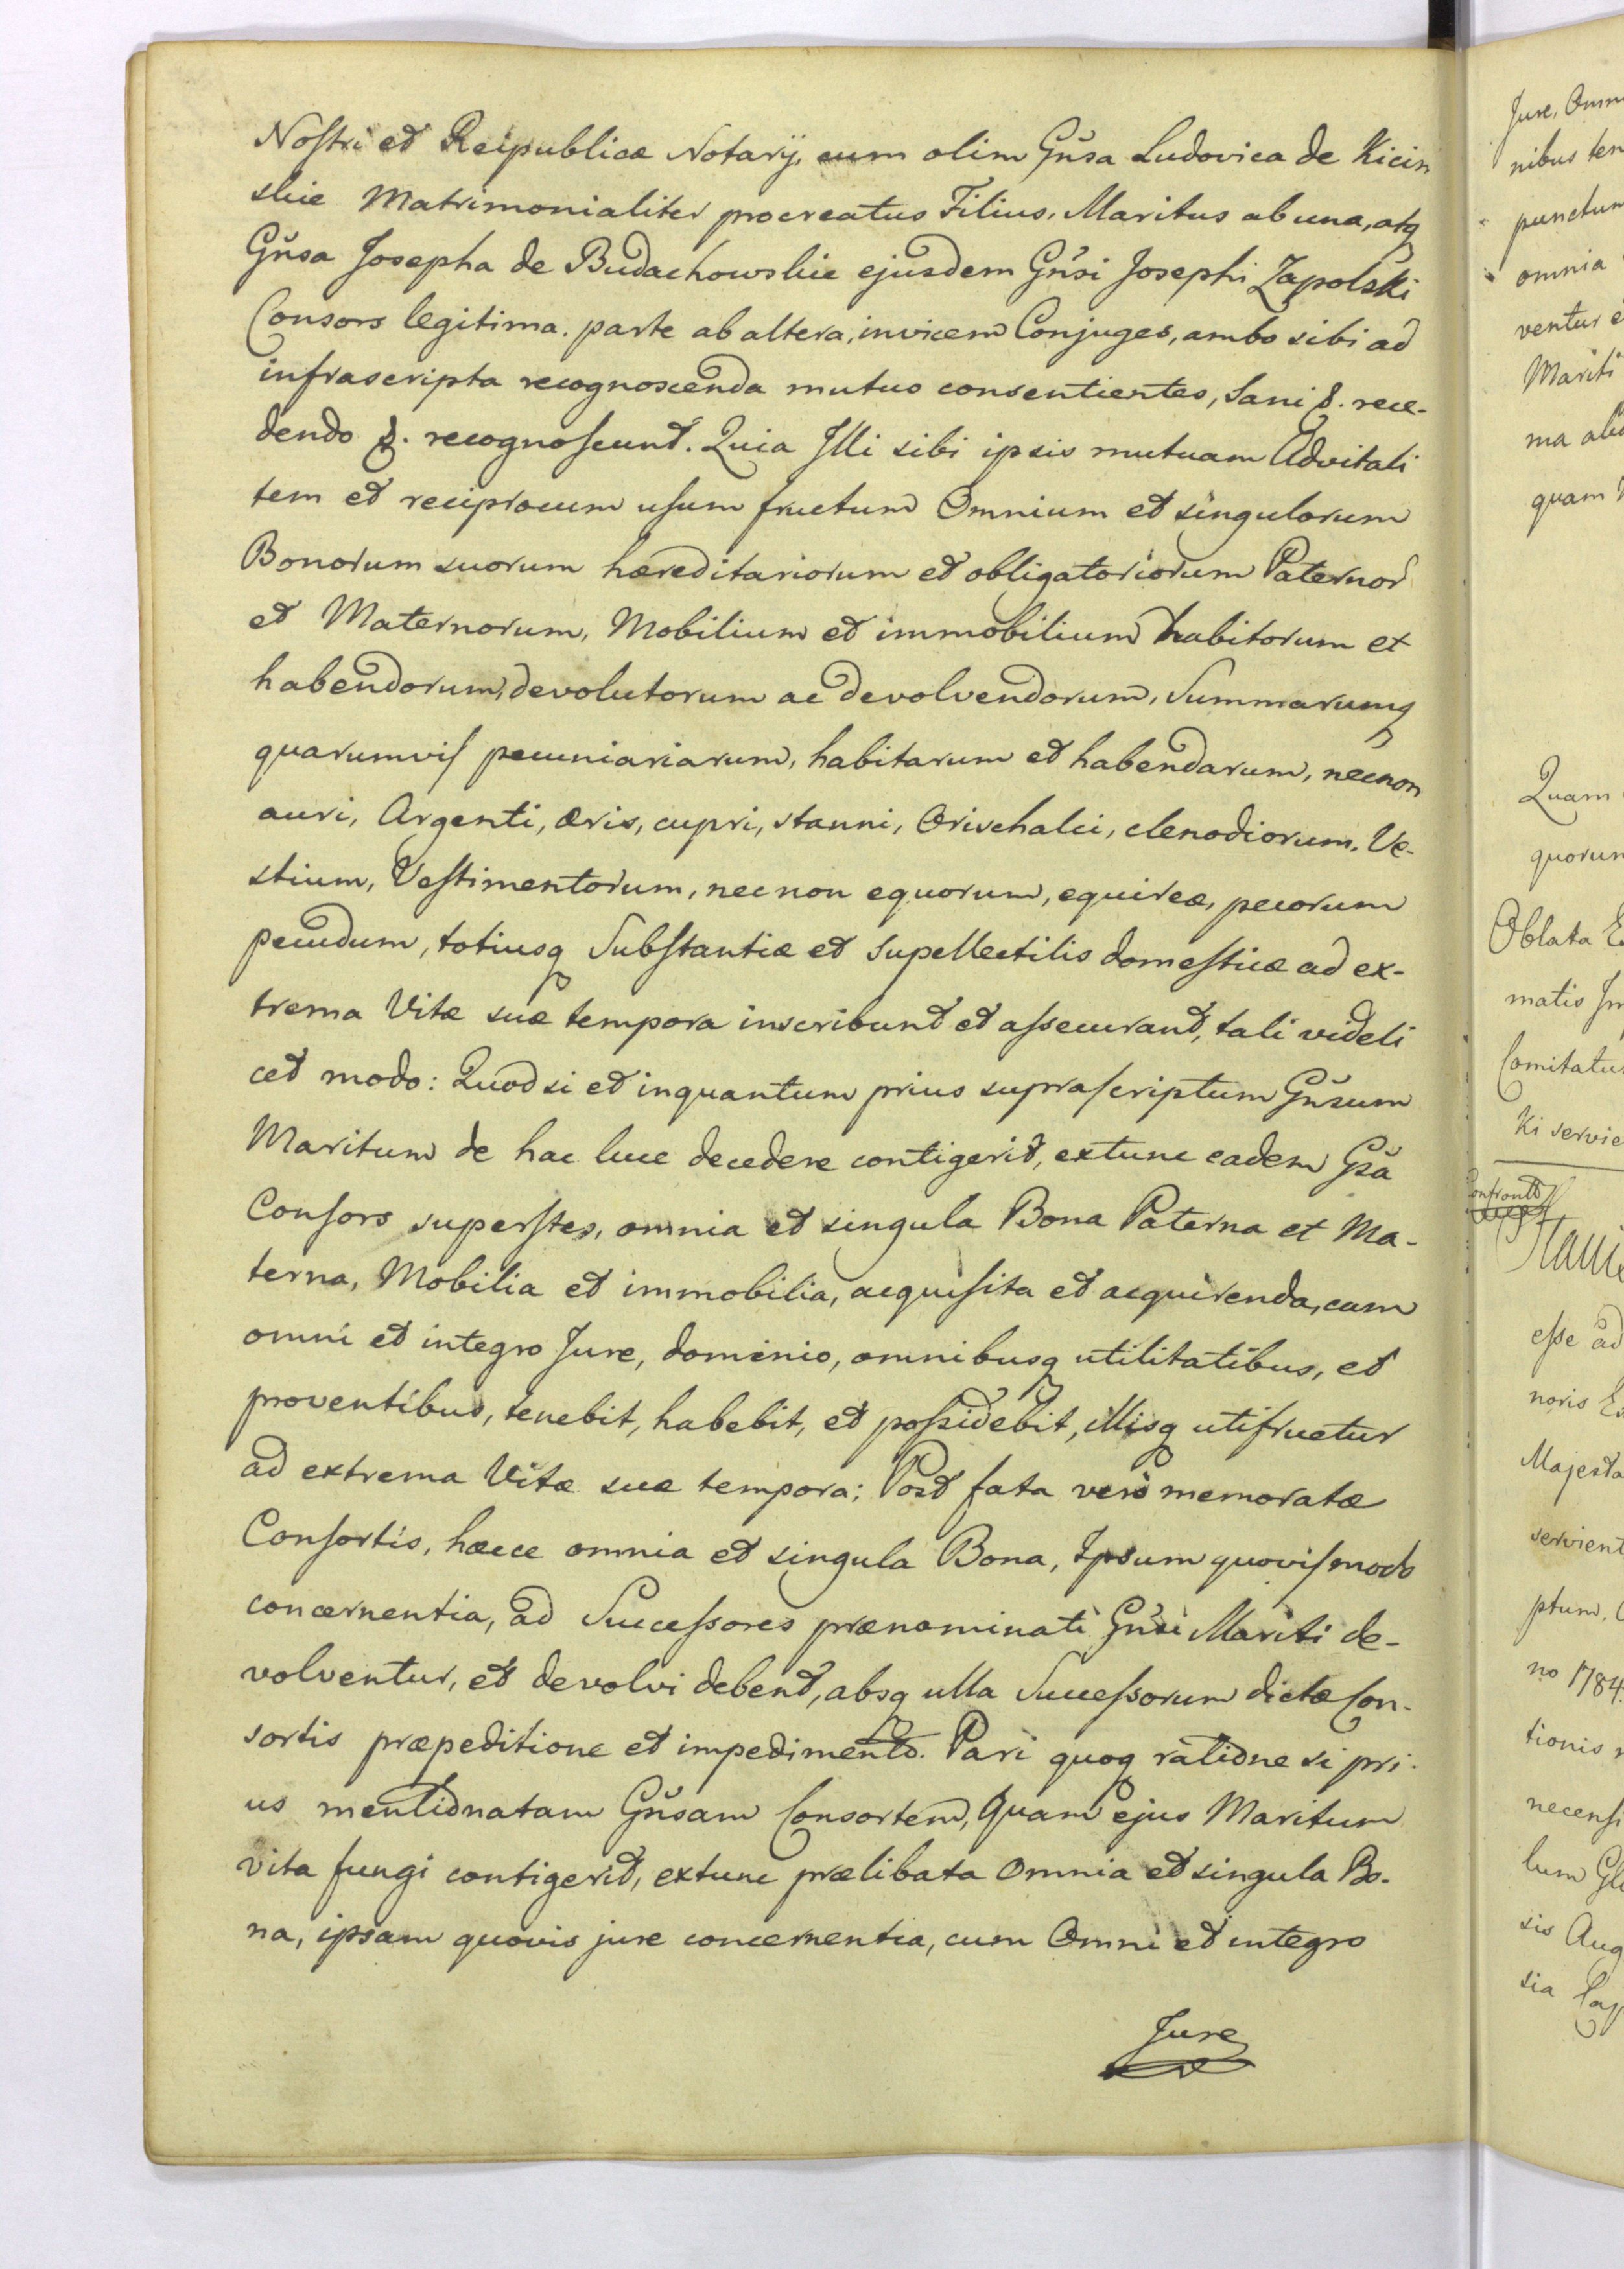 Nostri et Reipublicæ Notarij, cum olim Gnsa Ludovica de Kicin
skie Matrimonialiter procreatus Filius, Maritus ab una, atq
Gnsa Josepha de Budachowskie ejusdem Gnsi Josephi Zapolski
Consors legitima. parte ab altera, invicem Conjuges, ambo sibi ad
infrascripta recognoscenda mutuo consentientes, Sani &. rece-
dendo &. recognoscunt. Quia Illi sibi ipsis mutuam Advitali
tem et reciprocum usum fructum Omnium et singulorum
Bonorum suorum hæreditariorum et obligatoriorum Paternor
et Maternorum, Mobilium et immobilium habitorum et
habendorum, devolutorum ac devolvendorum, Summarumq
quarumvis pecuniariarum, habitarum et habendarum, necnon
auri, Argenti, æris, cupri, stanni, Orischalci, clenodiorum, Ve-
stium, Vestimentorum, nec non equorum, equireæ, pecorum
pecudum, totiusq Substantiæ et Supellectilis domesticæ ad ex-
trema Vitæ suæ tempora inscribunt et assecurant, tali videli
cet modo: Quod si et inquantum prius suprascriptum Gnsum
Maritum de hac luce decedere contigerit, extunc eadem Gsa
Consors superstes, omnia et singula Bona Paterna et Ma-
terna, Mobilia et immobilia, acquisita et acquirenda, cum
omni et integro Jure, dominio, omnibusq utilitatibus, et
proventibus, tenebit, habebit, et possidebit, illisq utifruetur
ad extrema Vitæ suæ tempora; Post fata vero memoratæ
Consortis, hæcce omnia et singula Bona, Ipsum quovismodo
concernentia, ad Successores prænominati Gnsi Mariti de-
volventur, et devolvi debent, absq ulla Successorum dictæ Con-
sortis præpeditione et impedimento. Pari quoq ratione si pri-
us mentionatam Gnsam Consortem, Quam ejus Maritum
vita fungi contigerit, extunc prælibata Omnia et singula Bo-
na, ipsam quovis jure concernentia, cum Omni et integro
Jure
Jure, Omn
nibus ten
punctum
omnia
ventur e
Mariti
quam
Quam
quorum
Oblata
matis
Comitatus
ki servie
esse ad
noris
Majesta
servient
ptum,
no 1784
tionis
necens
lum
sis Aug
sia